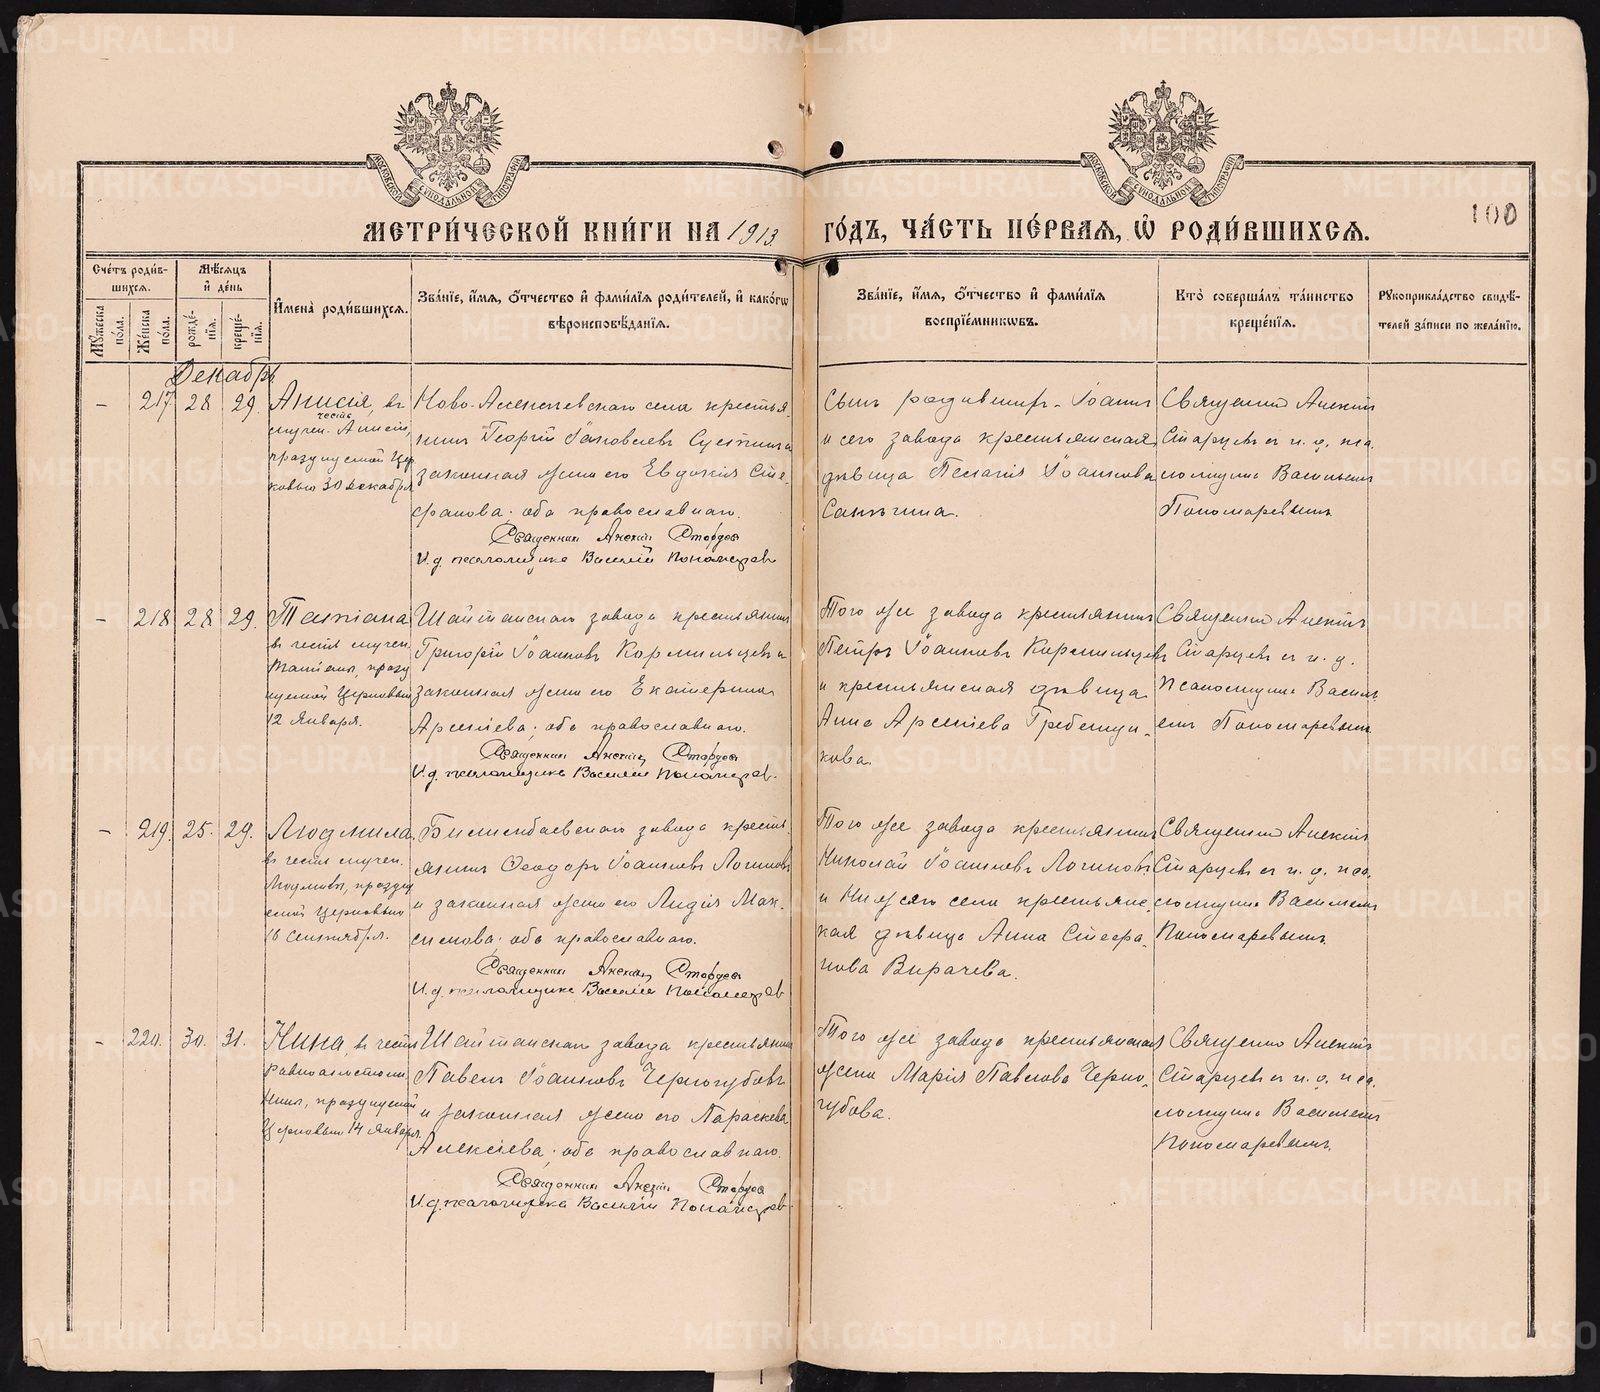 МЕТРИ́ЧЕСКОЙ КНИ́ГИ НА 1913 ГО́ДЪ, ЧА́СТЬ ПЕ́РВАЯ, Ѡ РОДИ́ВШИХСЯ.
100
МОСКОВСКОЙ СѴНОДАЛЬНОЙ ТИПОГРАФІИ
МОСКОВСКОЙ СѴНОДАЛЬНОЙ ТИПОГРАФІИ
Сче́тъ роди́в-
шихся.
Мꙋ́жеска по́ла.
Же́нска по́ла.
Мѣ́сяцъ
и҆ де́нь
рожде́-
нїя.
креще́-
нїя.
И҆мена̀ роди́вшихся.
Зва́нїе, и҆́мя, ѻ҆́тчество и҆ фами́лїя роди́телей, и҆ како́гѡ
вѣроисповѣ́данїя.
Зва́нїе, и҆́мя, ѻ҆́тчество и҆ фами́лїя
воспрїе́мникѡвъ.
Кто̀ соверша́лъ та́инство
креще́нїя.
Рꙋкоприкла́дство свидѣ́-
телей за́писи по жела́нїю.
Декабрь
- 217 28 29.
Анисія, въ
честь
мучен. Анисіи,
празднуемой Цер
ковью 30 декабря
Ново-Алексѣевскаго села крестья-
нинъ Георгій Іаковлевъ и
законная жена его Евдокія Сте-
фанова; оба православнаго.
Священникъ Алексій Старцевъ
И. д. псаломщика Василій Пономаревъ
Сынъ родивших. Іоаннъ
и сего завода крестьянская
дѣвица Пелагія Іоаннова
Санычина.
Священникъ Алексій
Старцевъ съ и. д. пса-
ломщика Василіемъ
Пономаревымъ
- 218 28 29.
Татіана
въ честь мучен.
Татіаны, празд
нуемой Церковью
12 Января.
Шайтанскаго завода крестьянинъ
Григорій Іоанновъ Кормильцевъ и
законная жена его Екатерина
Арсеніева; оба православнаго.
Священникъ Алексій Старцевъ
И. д. псаломщика Василій Пономаревъ.
Того же завода крестьянинъ
Петръ Іоанновъ Кормильцевъ
и крестьянская дѣвица
Анна Арсеніева Гребенщи-
кова.
Священникъ Алексій
Старцевъ съ и. д.
псаломщика Василі-
емъ Пономаревымъ
- 219. 25. 29.
Людмила
въ честь мучен.
Людмилы, праздну
емой Церковью
16 Сентября.
Билимбаевскаго завода кресть-
янинъ Ѳеодоръ Іоанновъ Логиновъ
и законная жена его Лидія Мак-
симова; оба православнаго.
Священникъ Алексій Старцевъ
И. д. псаломщика Василій Пономаревъ
Того же завода крестьянинъ
Николай Іоанновъ Логиновъ
и села крестьянс-
кая дѣвица Анна Стефа-
нова Вирачева.
Священникъ Алексій
Старцевъ съ и. д. пса-
ломщика Василіемъ
Пономаревымъ
- 220. 30. 31.
Нина, въ честь
равноапостольн.
Нины, празднуемой
Церковью 14 Января.
Шайтанскаго завода крестьянинъ
Павелъ Іоанновъ Черногубовъ
и законная жена его Параскева
Алексіева; оба православнаго.
Священникъ Алексій Старцевъ
И. д. псаломщика Василій Пономаревъ
Того же завода крестьянская
жена Марія Павлова Черно-
губова.
Священникъ Алексій
Старцевъ съ и. д. пса-
ломщика Василіемъ
Пономаревымъ
METRIKI.GASO-URAL.RU